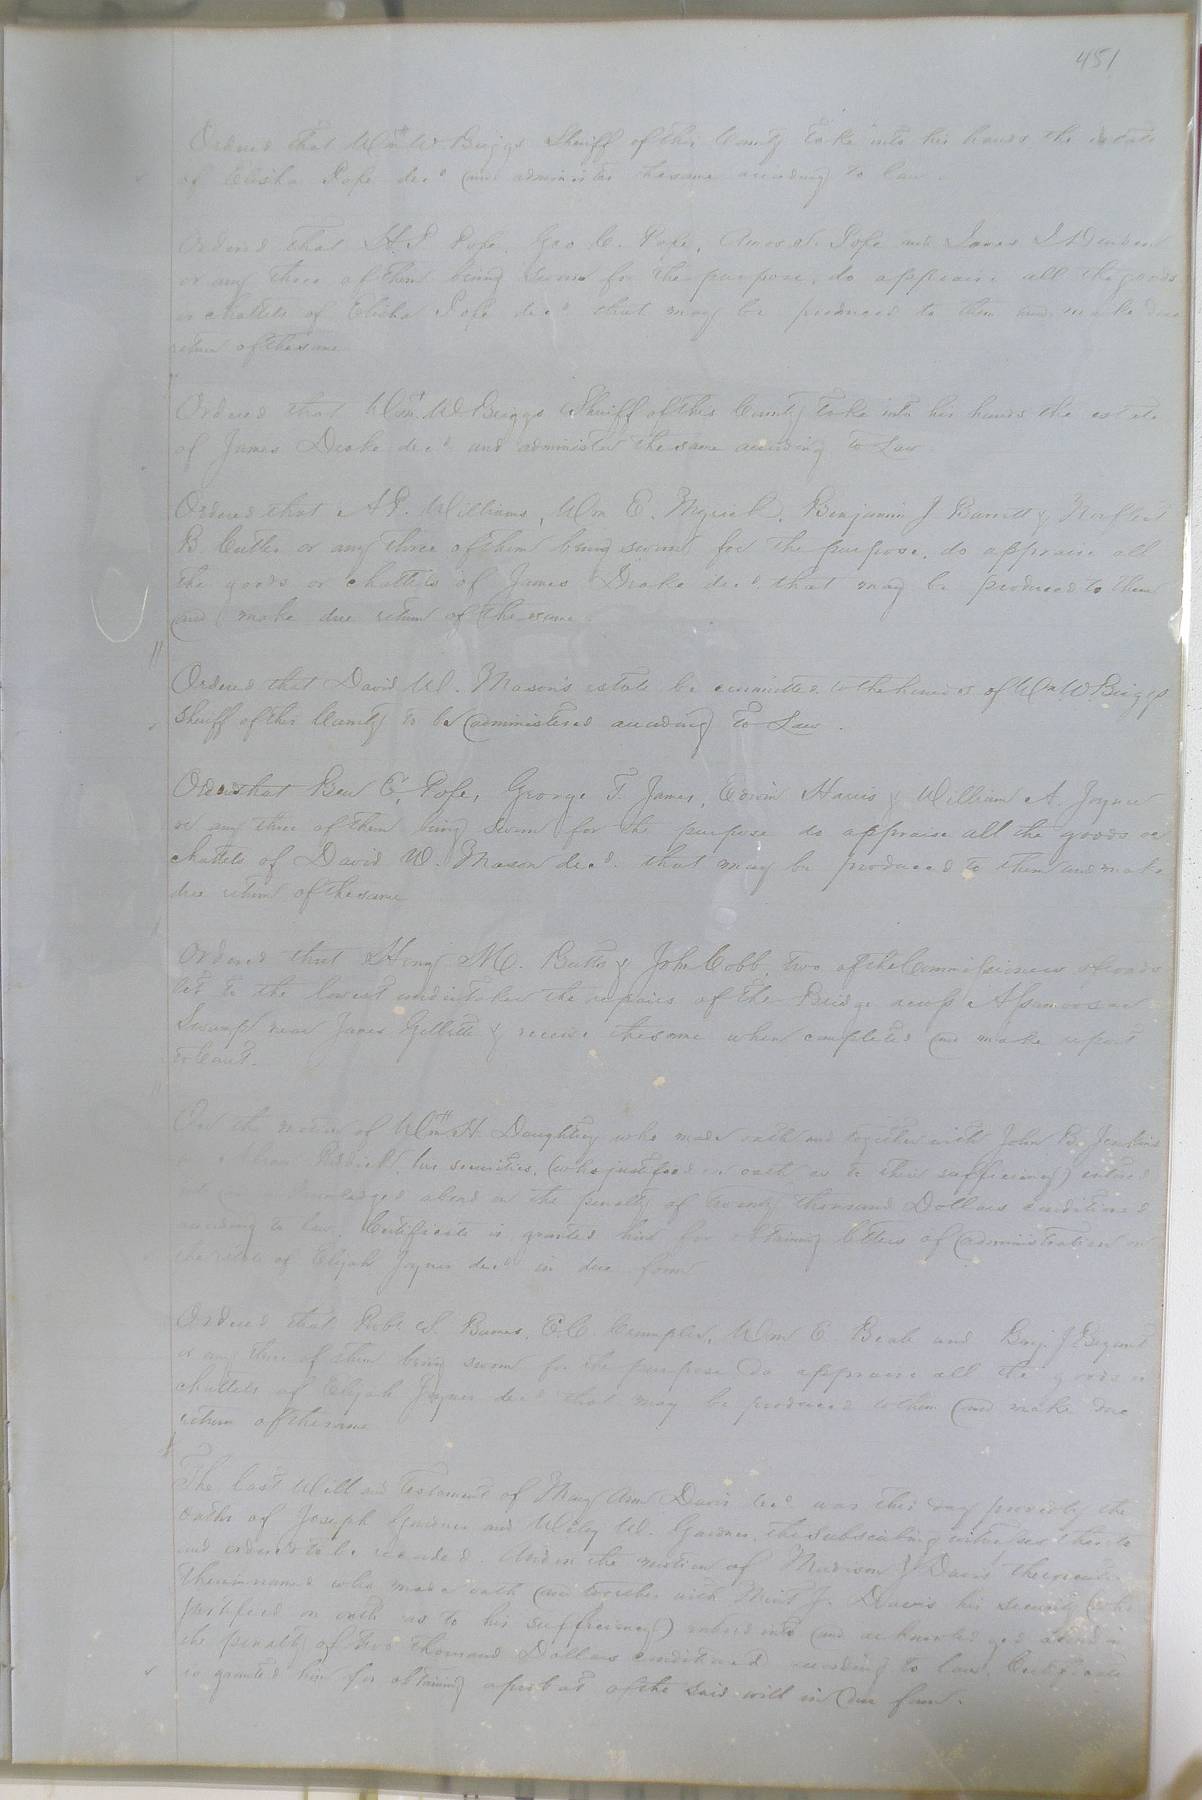 451
Ordered that Wm W Briggs Sheriff of this County take into his hands the estate
of Elisha Pope decd and administer the same according to law.
Ordered that H. P. Pope, Geo C. Pope, Amos Pope and James
or any three of them being sworn for the purpose, do appraise all the goods
or chattels of Elisha Pope decd that may be produced to them and make due
return of the same
Ordered that Wm W Briggs Sheriff of this County take into his hands the estate
of James Drake decd and administer the same according to Law
Ordered that A P. Williams, Wm E. Myrick, Benjamin J Barrett & Norfleet
B Cutler or any three of them being sworn for the purpose, do appraise all
the goods or chattels of James Drake decd that may be produced to them
and make due return of the same.
Ordered that David W. Mason's estate be committed to the hands of Wm W. Briggs
Sheriff of this County to be administered according to Law.
Ordered that Ben C. Pope, George F. James, Edwin Harris & William A. Joyner
or any three of them being sworn for the purpose do appraise all the goods or
chattels of David W. Mason decd. that may be produced to them and make
due return of the same
Ordered that Henry M. Butts & John Cobb, two of the Commissioners of roads
let to the lowest undertaker the repairs of the Bridge across Assamoosac
Swamp near James Gillette & receive the same when completed and make report
to Court.
On the motion of Wm H. Daughtrey who made oath and together with John B. Jenkins
Riddick, his securities, (who justified on oath as to their sufficiency) entered
acknowledged a bond in the penalty of twenty thousand Dollars conditioned
according to law, Certificate is granted him for obtaining letters of administration on
the estate of Elijah Joyner decd in due form
Ordered that Robt S. Barnes, E. C. Crumpler, Wm E. Beale and Benj. J.
or any three of them being sworn for the purpose do appraise all the goods or
chattels of Elijah Joyner decd that may be produced to them and make due
return of the same
The last Will and Testament of Mary Ann Davis decd was this day proved by the
oaths of Joseph Gardner and Wiley W. Gardner, the subscribing witnesses thereto
and ordered to be recorded. And on the motion of Madison J Davis the executor
therein named who made oath and together with J. Davis his security (who
justified on oath as to his sufficiency) entered into and acknowledged a bond in
the penalty of two thousand Dollars conditioned according to law, Certificate
is granted him for obtaining a probat of the said will in due form.